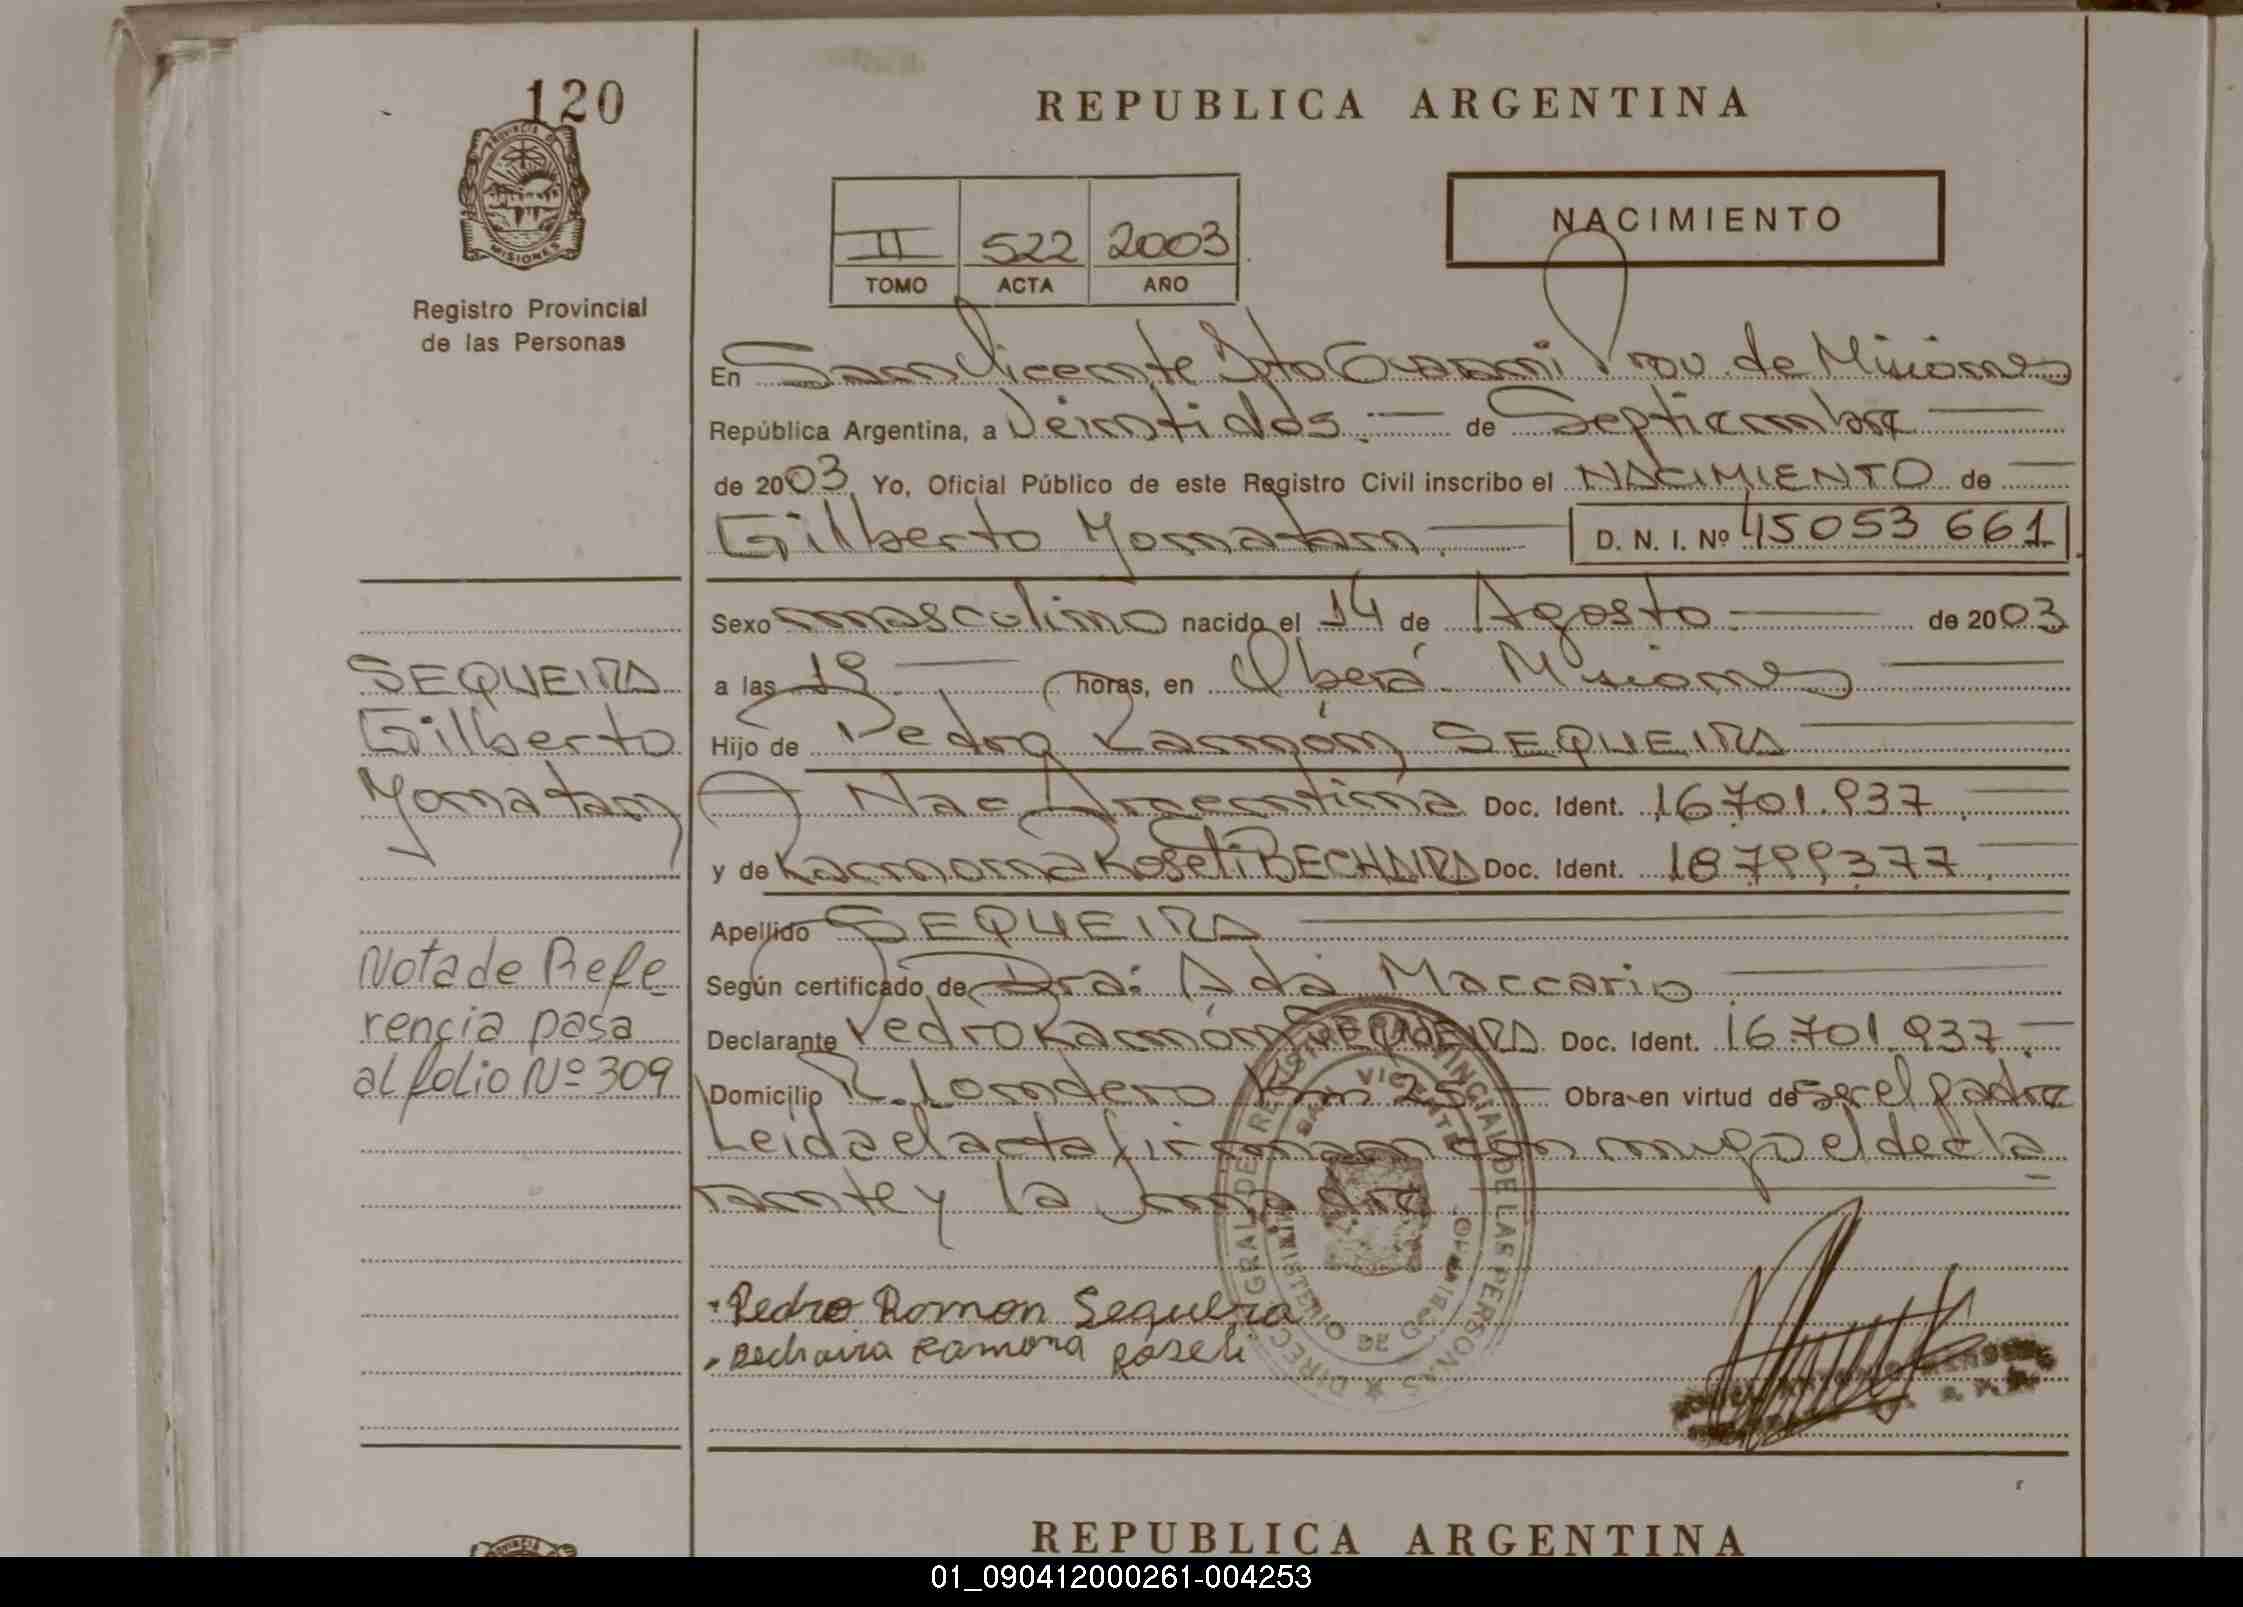 120
PROVINCIA DE
MISIONES
Registro Provincial
de las Personas
REPUBLICA ARGENTINA
II 522 2003
TOMO ACTA AÑO
NACIMIENTO
En San Vicente Dto Guaraní Prov. de Misiones
República Argentina, a Veintidós.- de Septiembre
de 2003 Yo, Oficial Público de este Registro Civil inscribo el NACIMIENTO de
Gilberto Yonatan.- D. N. I. Nº 45053 661
Sexo masculino nacido el 14 de Agosto.- de 2003
a las 19 . horas, en Oberá. Misiones
Hijo de Pedro Ramón SEQUEIRA
Nac Argentina Doc. Ident. 16.701.937
y de Ramona Roseti BECHAIRA Doc. Ident. 18799377
Apellido SEQUEIRA
Según certificado de Dra: Ada Maccario
Declarante Pedro Ramón SEQUEIRA Doc. Ident. 16.701.937.
Domicilio R. Londero Km 25 - Obra en virtud de ser el padre
Leida el acta firman con migo el decla
rante y la madre
Pedro Ramon Sequeira
Bechaira Ramona Roseti
SEQUEIRA
Gilberto
Yonatan
Nota de Refe
rencia pasa
al folio Nº 309
DIRECC. GRAL. DE REGISTRO PROVINCIAL DE LAS PERSONAS
SAN VICENTE
MINISTERIO DE GOBIERNO
REPUBLICA ARGENTINA
01_090412000261-004253